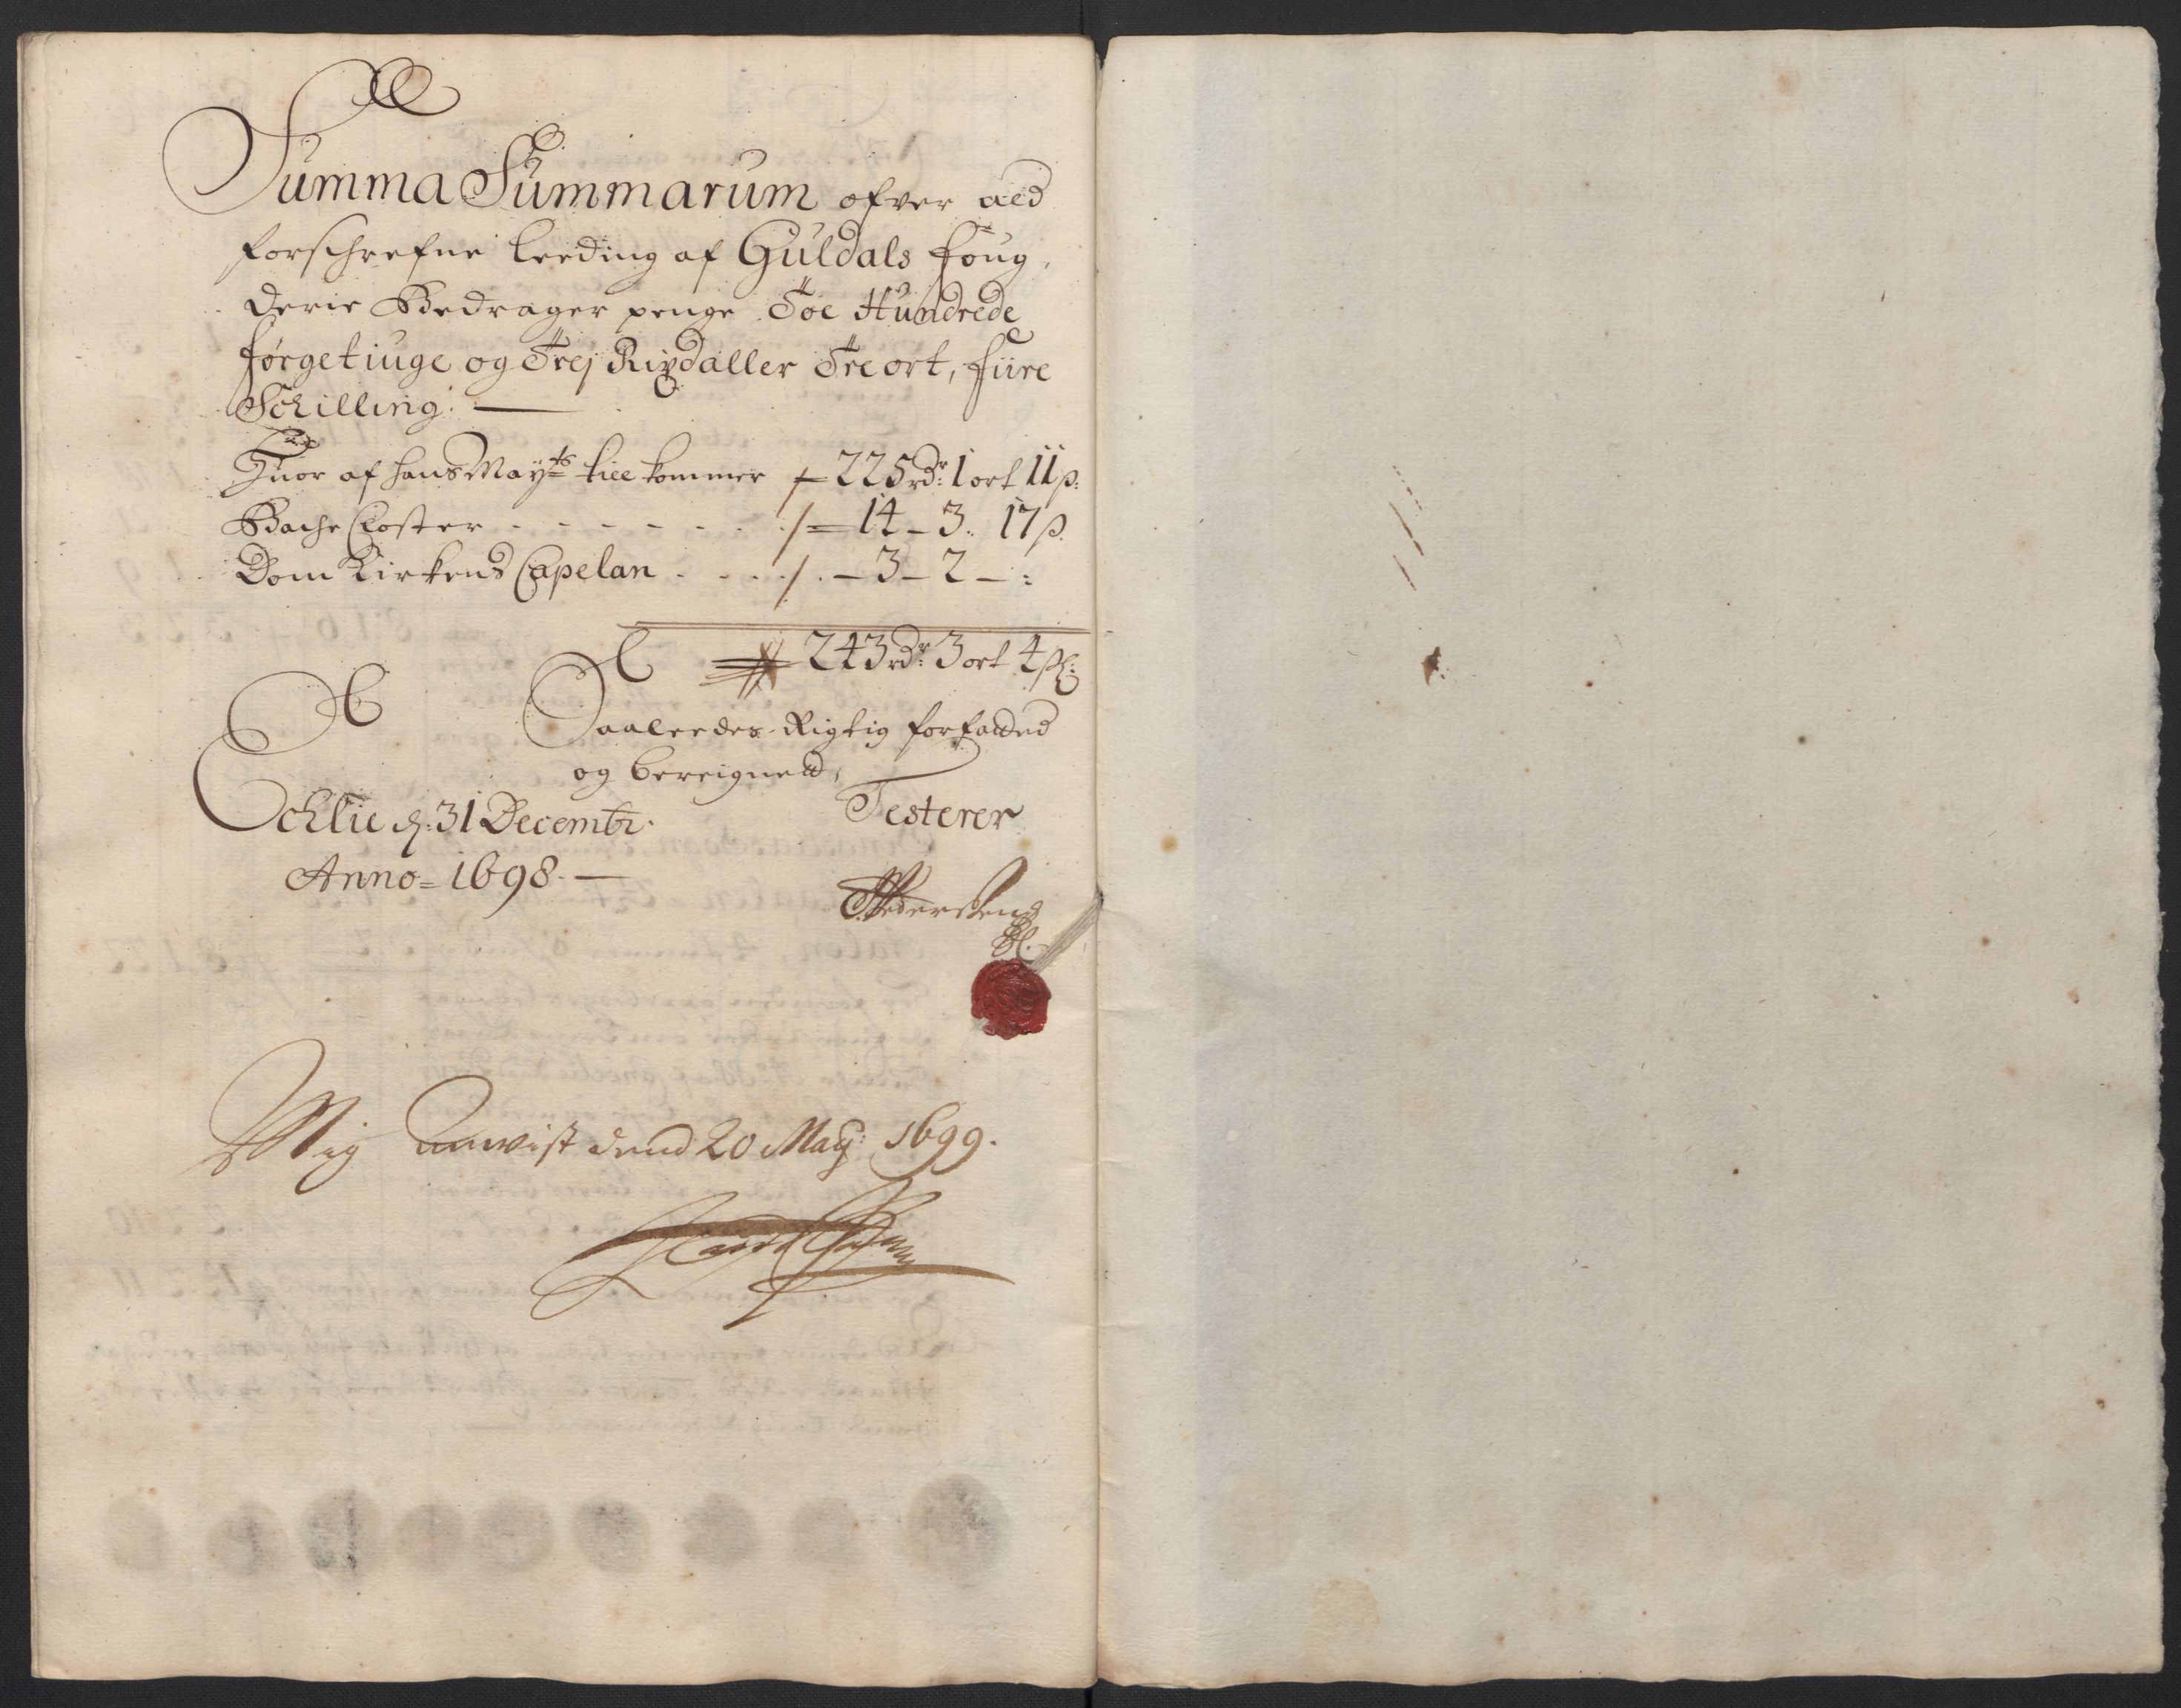 Summa Summarum ofver ald
forschrefne Leeding af Guldals foug,
derie Bedrager penge Toe Hundrede
førgetiuge og Trej Rixdaller Tre ort, fiire
Schilling: —
Huor af hans Mayts till kommer 225 rdr: 1 ort 11 ß:
Bache Closter - - - - - - - 14 - 3 . 17 ß.
Dom Kirkens Capelan - - - - 3 - 2 - :
243 rdr: 3 ort 4 ß:
Saaleedes Rigtig forfatted
og bereigned,
Testerer
d: 31 Decembr:
Anno = 1698. —
Pedersen
Mig Anvist dend 20 Maij: 1699.